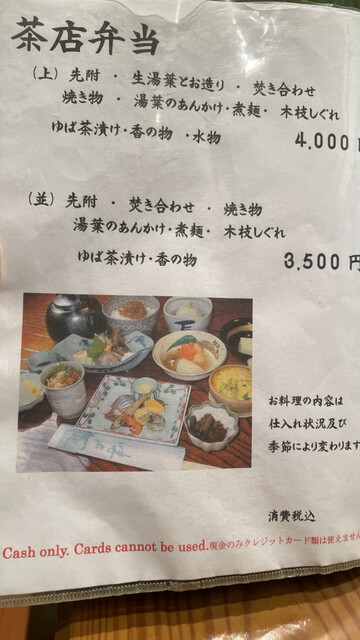 茶店弁当
（上）先附 ・ 生湯葉とお造り ・ 焚き合わせ
焼き物 ・ 湯葉のあんかけ・煮麺・ 木枝しぐれ
ゆば茶漬け・香の物 ・水物 4,000円
（並）先附 ・ 焚き合わせ ・ 焼き物
湯葉のあんかけ・煮麺・ 木枝しぐれ
ゆば茶漬け・香の物 3,500円
お料理の内容は
仕入れ状況及び
季節により変わります
消費税込
Cash only. Cards cannot be used.現金のみクレジットカード類は使えません